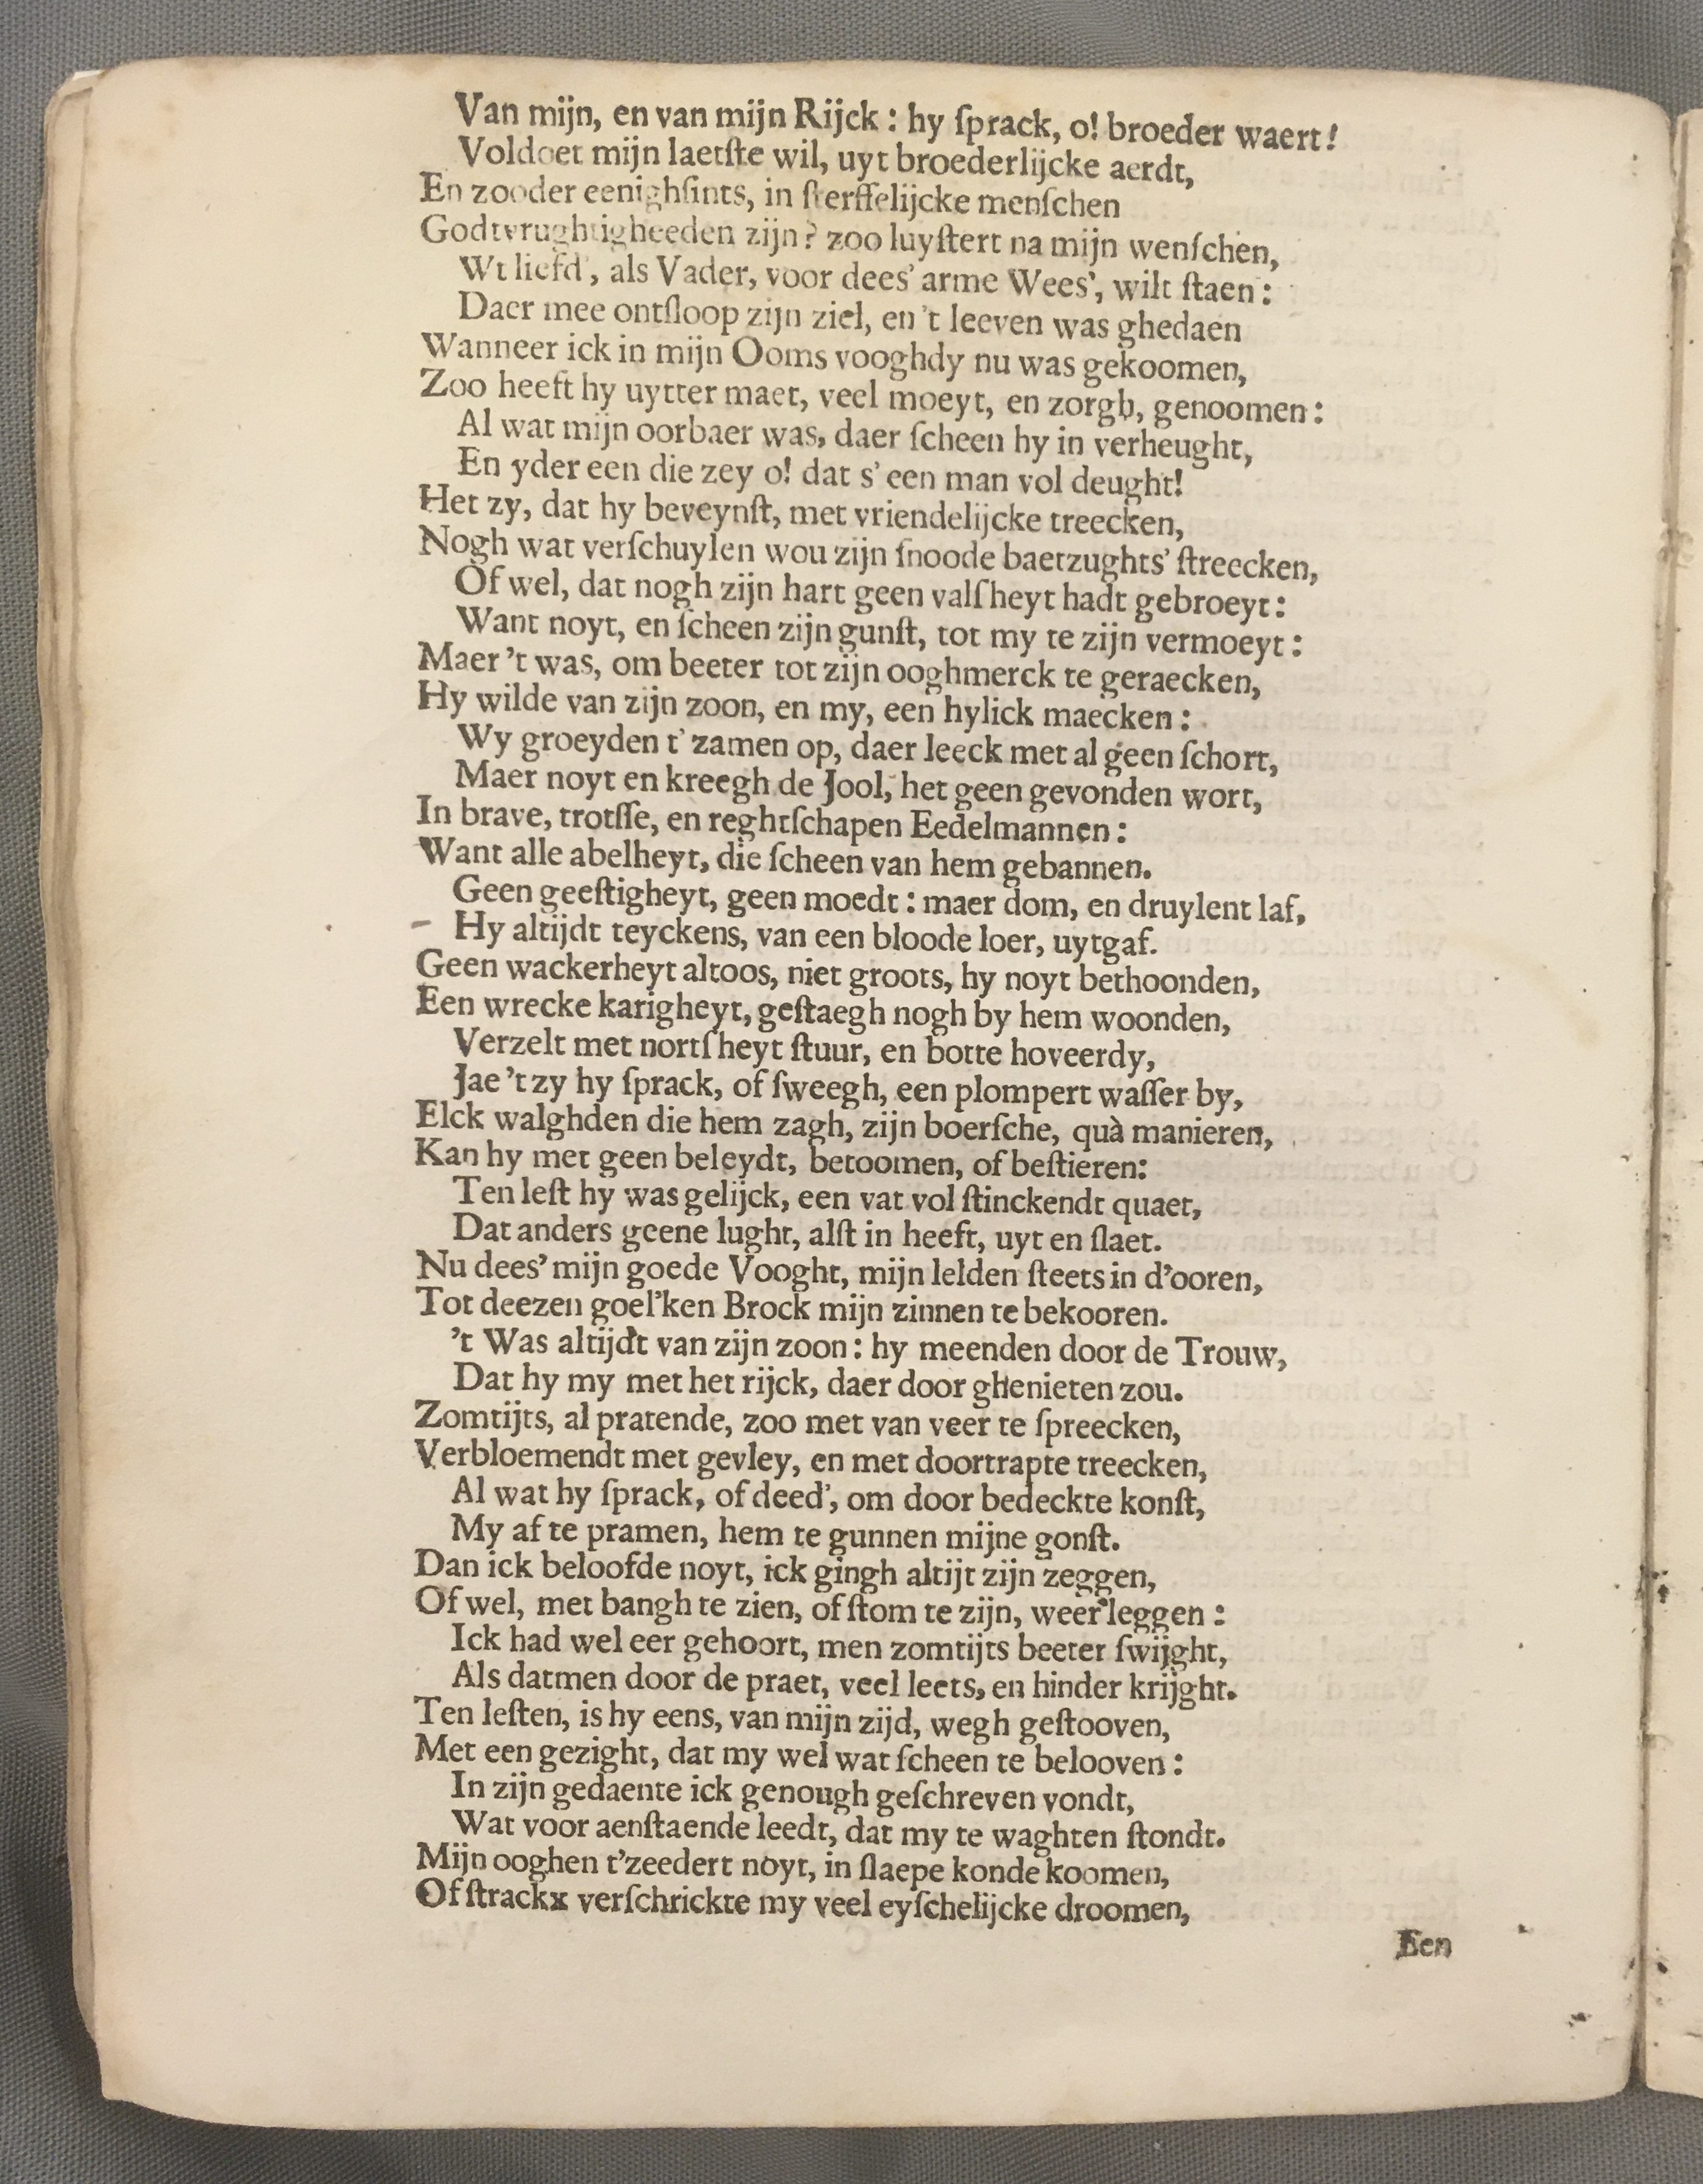 Van mijn, en van mijn Rijck : hy ſprack, o! broeder waert!
Voldoet mijn laetſte wil, uyt broederlijcke aerdt,
En zooder eenighſints, in ſterffelijcke menſchen
Godtvrughtigheeden zijn? zoo luyſtert na mijn wenſchen,
Wt liefd', als Vader, voor dees' arme Wees', wilt ſtaen :
Daer mee ontſloop zijn ziel, en 't leeven was ghedaen
Wanneer ick in mijn Ooms vooghdy nu was gekoomen,
Zoo heeft hy uytter maet, veel moeyt, en zorgh, genoomen :
Al wat mijn oorbaer was, daer ſcheen hy in verheught,
En yder een die zey o! dat s' een man vol deught!
Het zy, dat hy beveynſt, met vriendelijcke treecken,
Nogh wat verſchuylen wou zijn ſnoode baetzughts' ſtreecken,
Of wel, dat nogh zijn hart geen valſheyt hadt gebroeyt :
Want noyt, en ſcheen zijn gunſt, tot my te zijn vermoeyt :
Maer 't was, om beeter tot zijn ooghmerck te geraecken,
Hy wilde van zijn zoon, en my, een hylick maecken :
Wy groeyden t' zamen op, daer leeck met al geen ſchort,
Maer noyt en kreegh de Jool, het geen gevonden wort,
In brave, trotſſe, en reghtſchapen Eedelmannen :
Want alle abelheyt, die ſcheen van hem gebannen.
Geen geeſtigheyt, geen moedt : maer dom, en druylent laf,
Hy altijdt teyckens, van een bloode loer, uytgaf.
Geen wackerheyt altoos, niet groots, hy noyt bethoonden,
Een wrecke karigheyt, geſtaegh nogh by hem woonden,
Verzelt met nortſheyt ſtuur, en botte hoveerdy,
Jae 't zy hy ſprack, of ſweegh, een plompert waſſer by,
Elck walghden die hem zagh, zijn boerſche, quà manieren,
Kan hy met geen beleydt, betoomen, of beſtieren:
Ten leſt hy was gelijck, een vat vol ſtinckendt quaet,
Dat anders geene lught, alſt in heeft, uyt en ſlaet.
Nu dees' mijn goede Vooght, mijn lelden ſteets in d'ooren,
Tot deezen goel'ken Brock mijn zinnen te bekooren.
't Was altijdt van zijn zoon : hy meenden door de Trouw,
Dat hy my met het rijck, daer door ghenieten zou.
Zomtijts, al pratende, zoo met van veer te ſpreecken,
Verbloemendt met gevley, en met doortrapte treecken,
Al wat hy ſprack, of deed', om door bedeckte konſt,
My af te pramen, hem te gunnen mijne gonſt.
Dan ick beloofde noyt, ick gingh altijt zijn zeggen,
Of wel, met bangh te zien, of ſtom te zijn, weer leggen :
Ick had wel eer gehoort, men zomtijts beeter ſwijght,
Als datmen door de praet, veel leets, en hinder krijght.
Ten leſten, is hy eens, van mijn zijd, wegh geſtooven,
Met een gezight, dat my wel wat ſcheen te belooven :
In zijn gedaente ick genough geſchreven vondt,
Wat voor aenſtaende leedt, dat my te waghten ſtondt.
Mijn ooghen t'zeedert noyt, in ſlaepe konde koomen,
Of ſtrackx verſchrickte my veel eyſchelijcke droomen,
Een